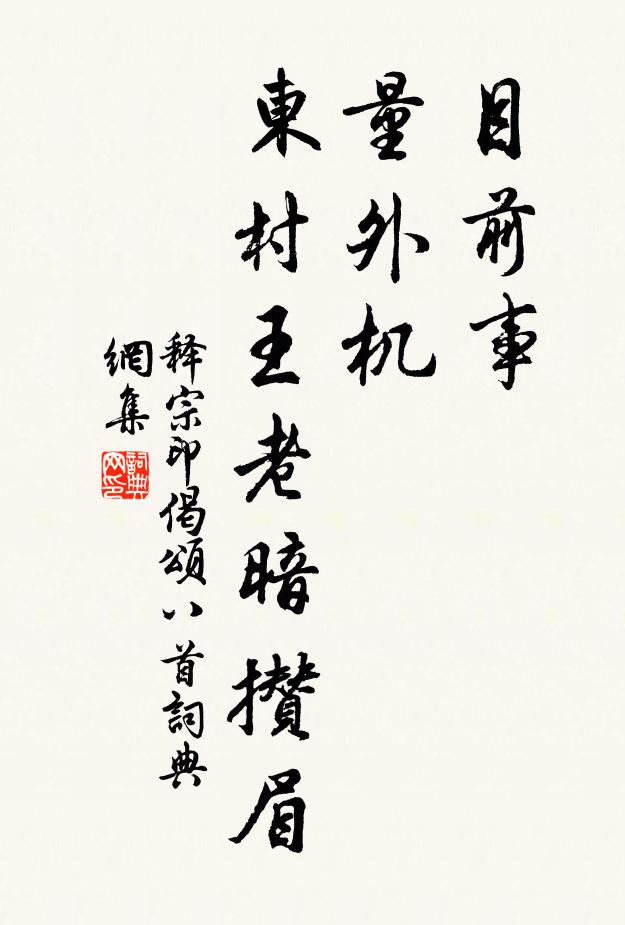 目前事
量外机
東村王老暗攢眉
释宗印偈頌八首詞典
網集
詞典
网印